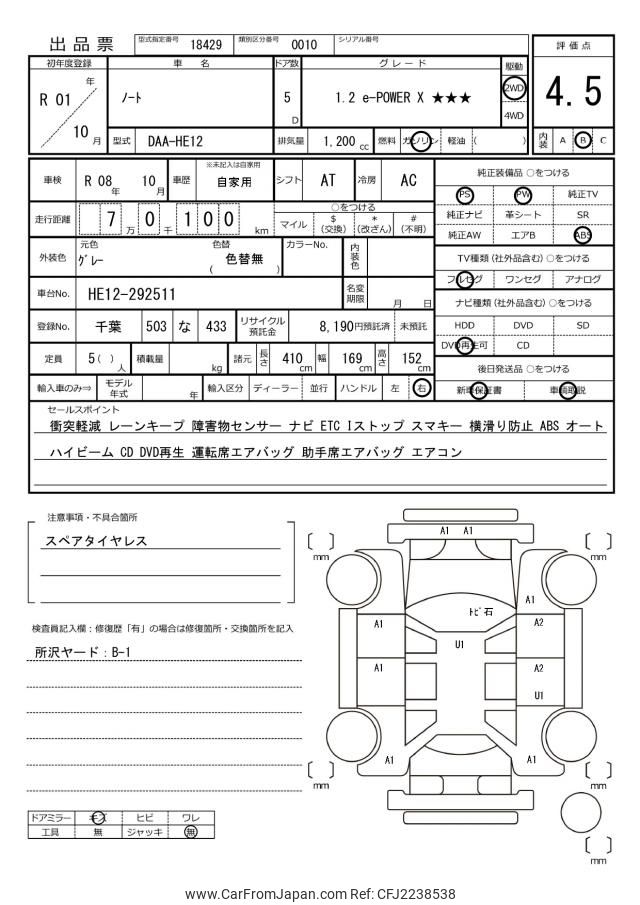 出品票 型式指定番号 18429 類別区分番号 0010 シリアル番号
評価点
4.5
内装 A B C
初年度登録 車 名 ドア数 グレード 駆動
R 01 年 10 月
ノート 5 D 1.2 e-POWER X ★★★ 2WD 4WD
型式 DAA-HE12 排気量 1,200 cc 燃料 ガソリン 軽油 ( )
車検 R 08 年 10 月 車歴 ※未記入は自家用 自家用 シフト AT 冷房 AC
走行距離 7 万 0 千 1 0 0 km
○をつける
マイル $ (交換) * (改ざん) # (不明)
外装色 元色 グレー 色替 ( 色替無 ) カラーNo. 内装色
車台No. HE12-292511 名変期限 月 日
登録No. 千葉 503 な 433 リサイクル預託金 8,190円預託済 未預託
定員 5( ) 人 積載量 kg 諸元 長さ 410 cm 幅 169 cm 高さ 152 cm
輸入車のみ⇒ モデル年式 年 輸入区分 ディーラー 並行 ハンドル 左 右
純正装備品 ○をつける
PS PW 純正TV
純正ナビ 革シート SR
純正AW エアB ABS
TV種類 (社外品含む) ○をつける
フルセグ ワンセグ アナログ
ナビ種類 (社外品含む) ○をつける
HDD DVD SD
DVD再生可 CD
後日発送品 ○をつける
新車保証書 車輌取説
セールスポイント
衝突軽減 レーンキープ 障害物センサー ナビ ETC Iストップ スマキー 横滑り防止 ABS オート
ハイビーム CD DVD再生 運転席エアバッグ 助手席エアバッグ エアコン
注意事項・不具合箇所
スペアタイヤレス
検査員記入欄：修復歴「有」の場合は修復箇所・交換箇所を記入
所沢ヤード：B-1
ドアミラー キズ ヒビ ワレ
工具 無 ジャッキ 無
A1 A1
mm mm
A1
トビ石
A1 A2
U1
A1 A2
U1
A1 A1
mm mm
mm
www.CarFromJapan.com Ref: CFJ2238538